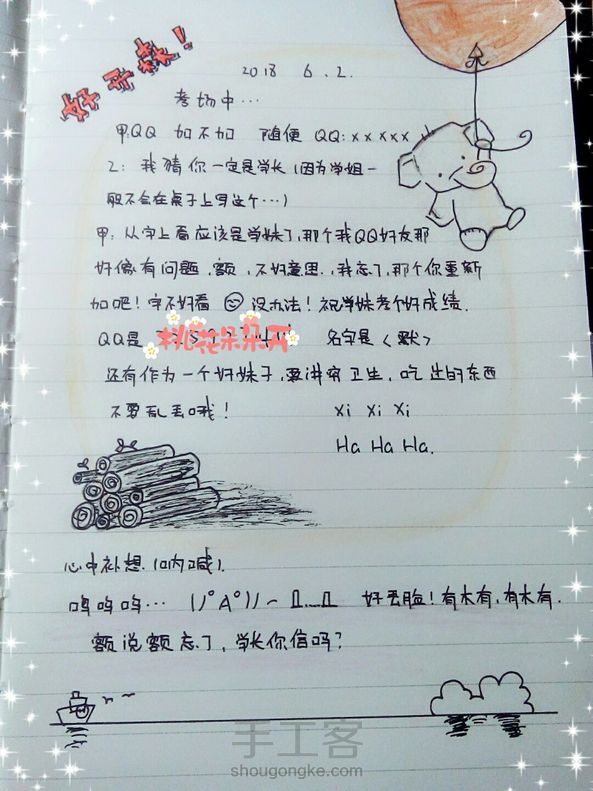 好开森!
2018 6.2.
考场中…
甲:QQ 加不加 随便 QQ:xxxxx
乙:我猜你一定是学长(因为学姐一
般不会在桌子上写这个…)
甲:从字上看应该是学妹了,那个我QQ好友那
好像有问题.额,不好意思,我忘了,那个你重新
加吧!字不好看 没办法!祝学妹考个好成绩.
QQ是 桃花朵朵开 名字是〈默〉
还有作为一个好妹子,要讲究卫生,吃过的东西
不要乱丢哦! Xi Xi Xi
Ha Ha Ha.
心中补想.(内喊).
呜呜呜… 好丢脸!有木有,有木有.
额说额忘了,学长你信吗?
手工客
shougongke.com